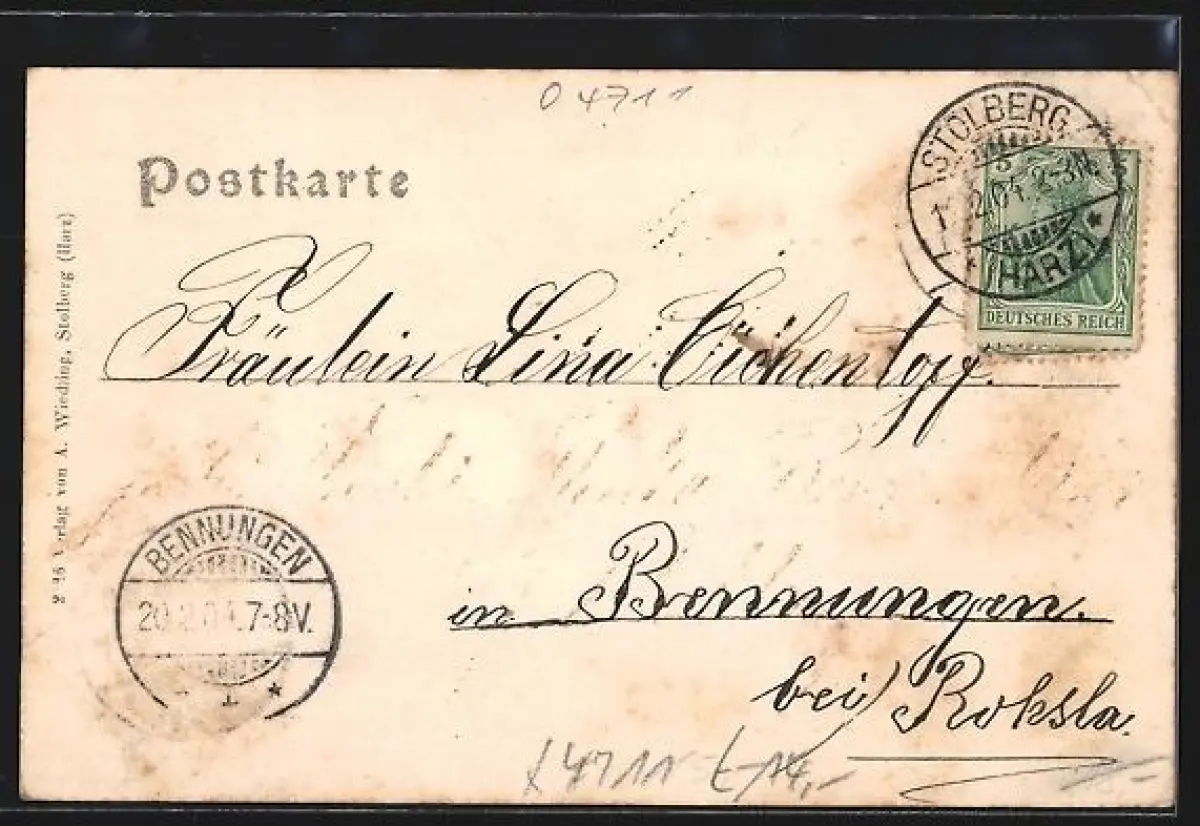 O 4711
Postkarte
STOLBERG
2.04. 2-3N.
* (HARZ) *
DEUTSCHES REICH
Fräulein Lina Eichentopf.
BENNUNGEN
20.2.04.7-8V.
in Bennungen.
bei Roksla.
Verlag von A. Wiedling, Stolberg (Harz)
4711 14,-